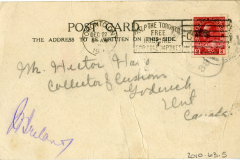 POST CARD
THE ADDRESS TO BE WRITTEN ON THIS SIDE.
HELP THE TORONTO
FREE
Mr. Hector Hays
Collector of Customs
Goderich
Ont
Canada.
2010-63-5